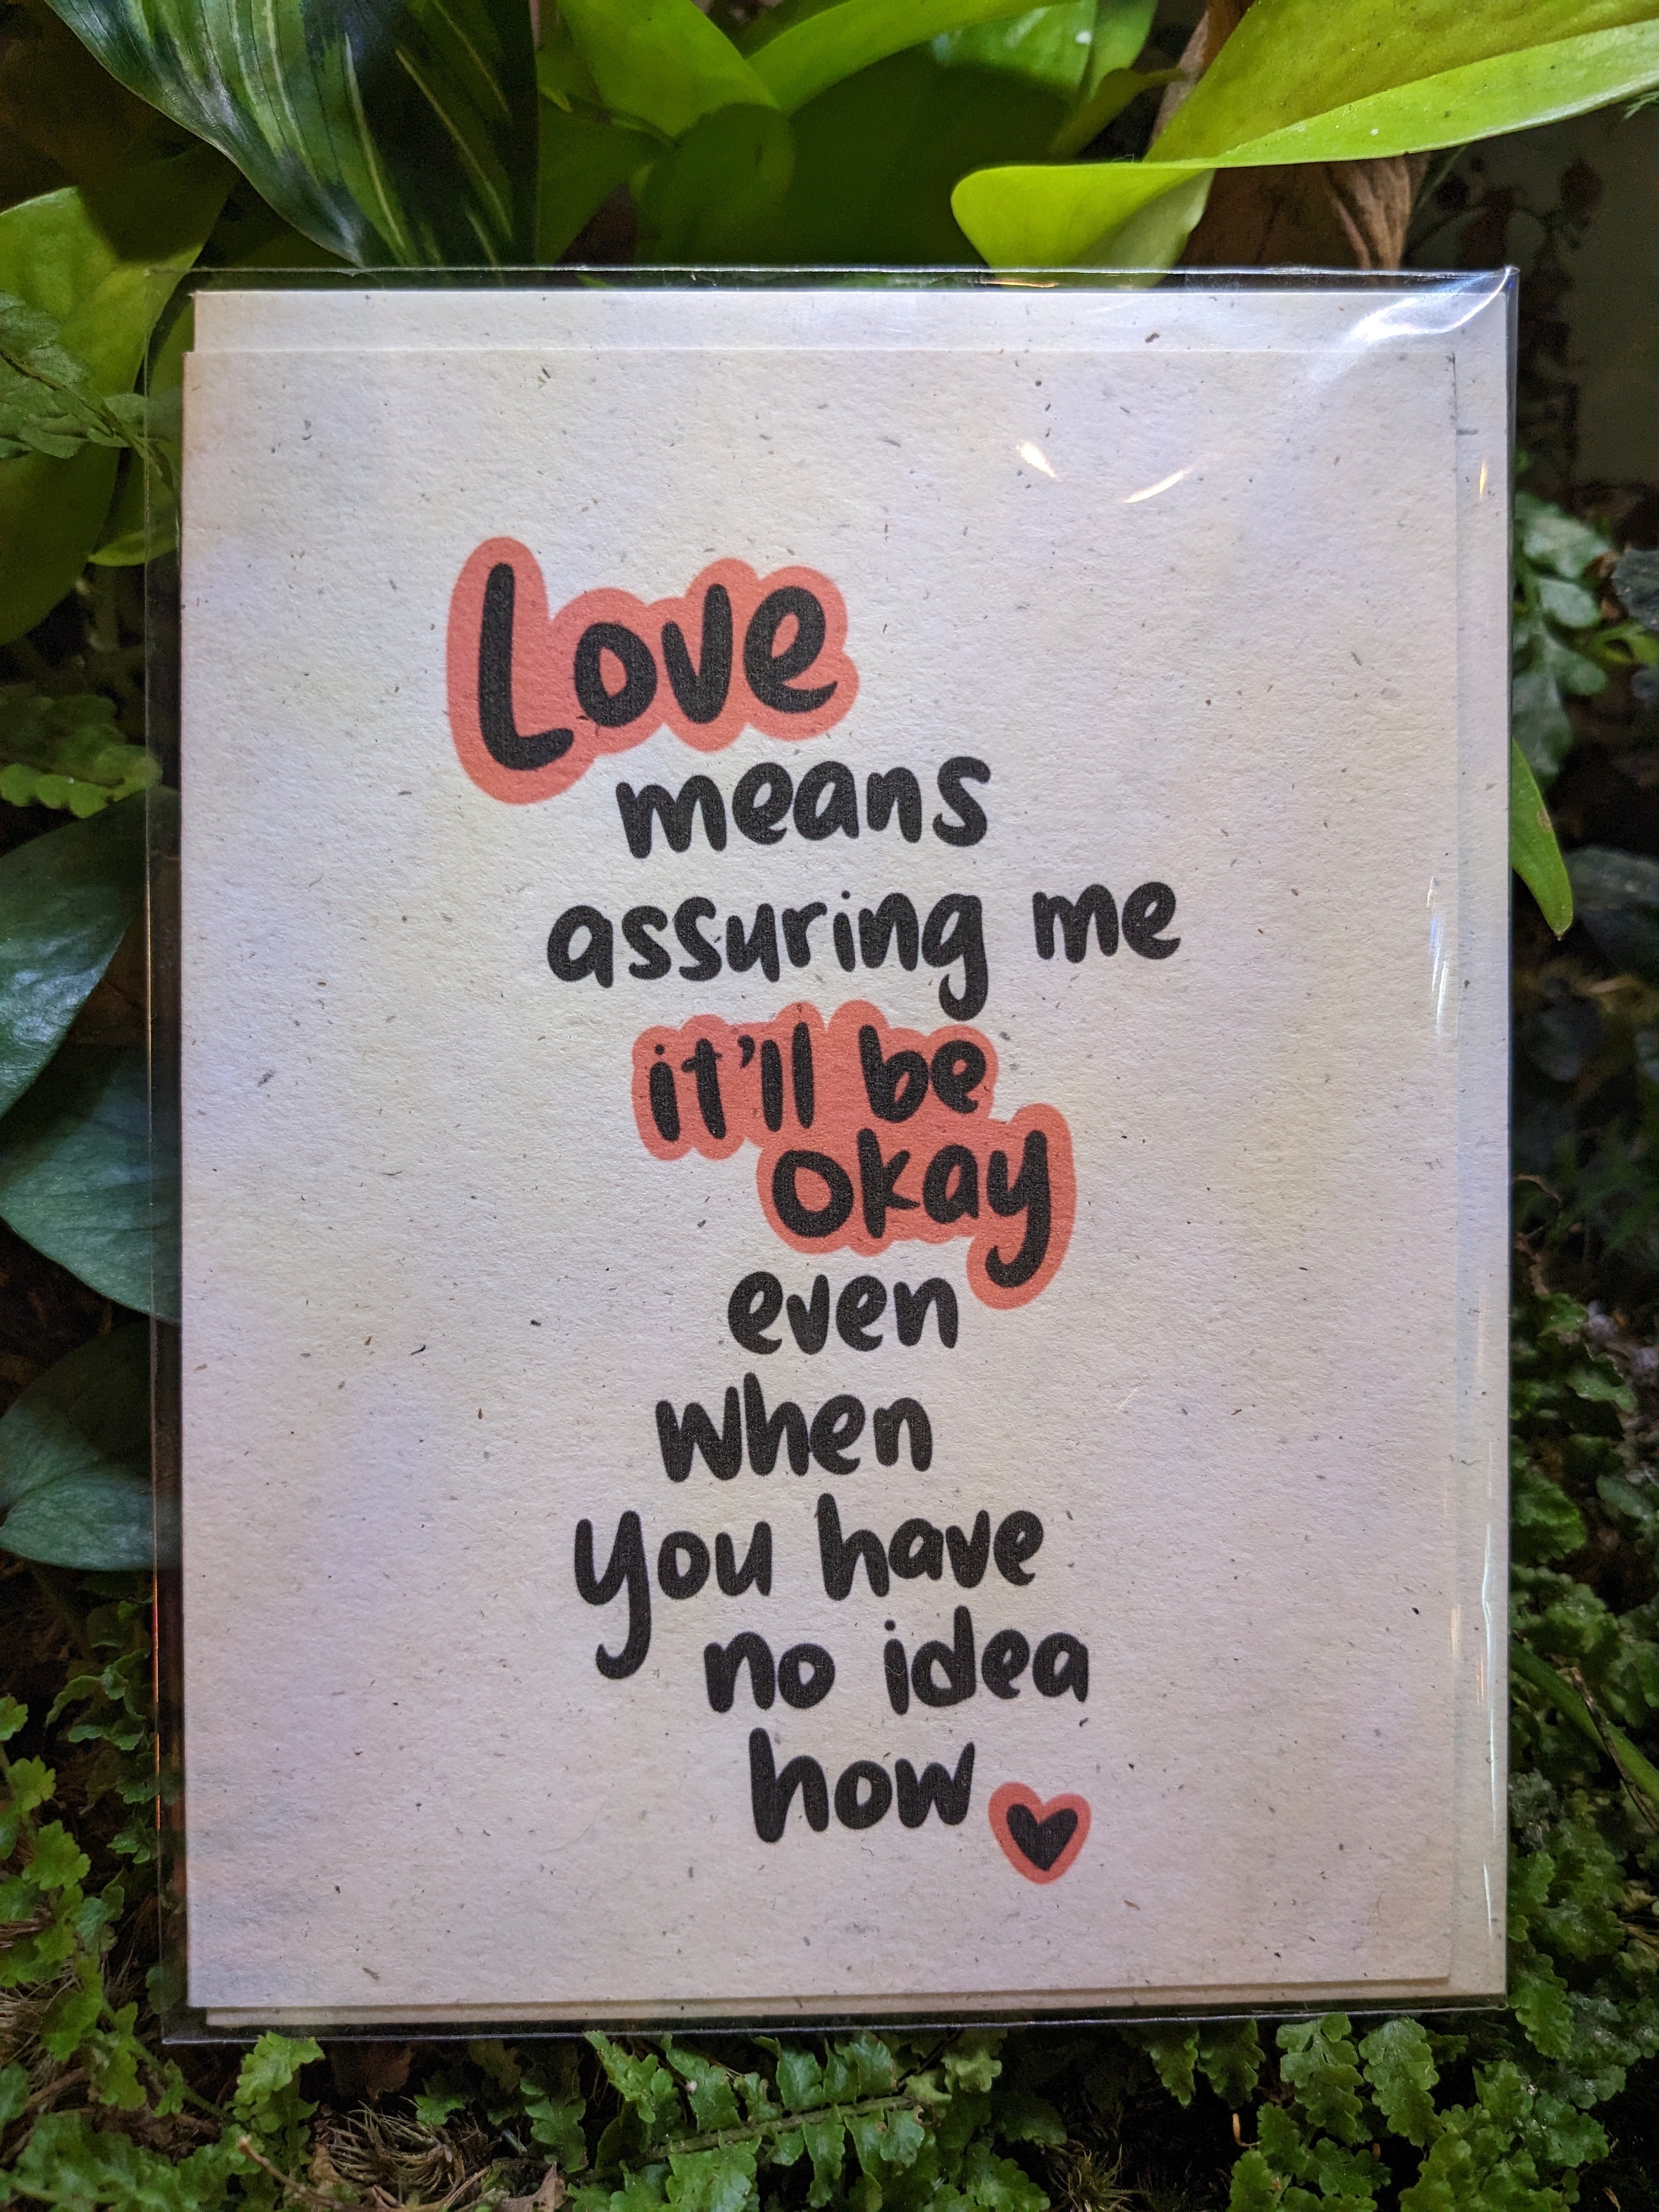 Love
means
assuring me
it'll be
okay
even
when
you have
no idea
how